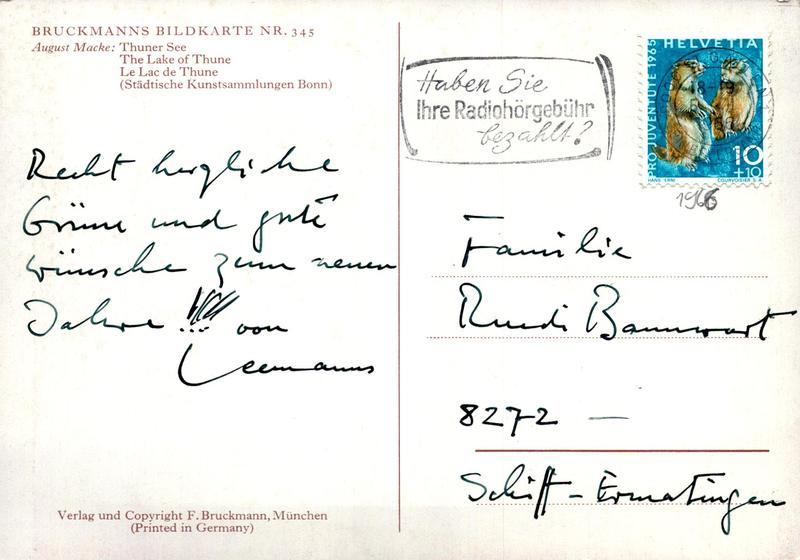 BRUCKMANNS BILDKARTE NR. 345
August Macke: Thuner See
The Lake of Thune
Le Lac de Thune
(Städtische Kunstsammlungen Bonn)
Recht herzliche
Grüsse und gute
wünsche zum neuen
Jahre !!!! von
Leemanns
Verlag und Copyright F. Bruckmann, München
(Printed in Germany)
Haben Sie
Ihre Radiohörgebühr
bezahlt?
HELVETIA
PRO JUVENTUTE 1965
10
+10
HANS ERNI COURVOISIER S.A.
1966
Familie
Ruedi Bannwart
8272 —
Schiff - Ermatingen